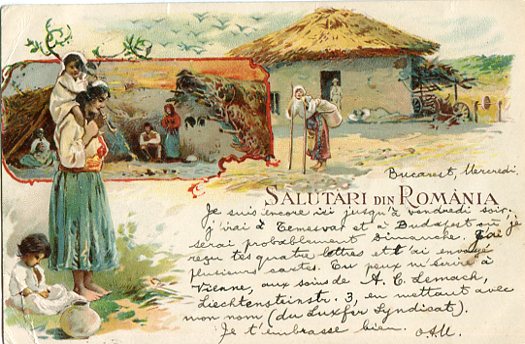 Bucarest, Mercredi,
SALUTARI DIN ROMÂNIA
Je suis encore ici jusqu'à vendredi soir.
J'irai à Temesvar et à Budapest où je
serai probablement dimanche. J'ai
reçu tes quatre lettres et t'ai envoyé
plusieurs cartes. Tu peux m'écrire à
Vienne, aux soins de H. E. Lemach,
Liechtensteinstr. 3, en mettant avec
mon nom (du Luxfer Syndicat).
Je t'embrasse bien.